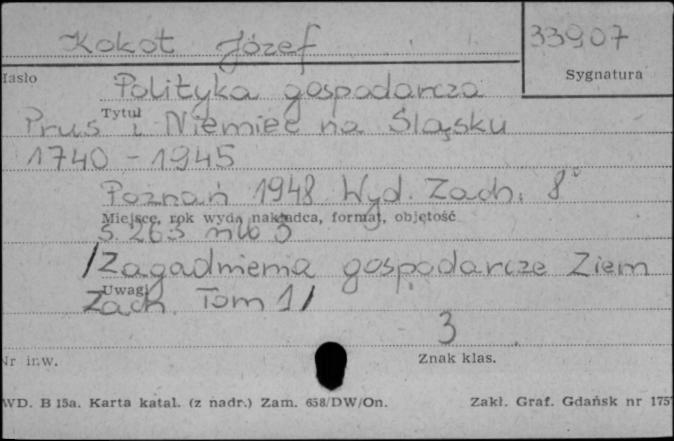 Kokot Józef
33907
Hasło
Sygnatura
Polityka gospodarcza
Tytuł
Prus i Niemiec na Śląsku
1740 - 1945
Poznań 1948 Wyd. Zach. 8°
Miejsce, rok wyd., nakładca, format, objętość
s. 263 nlb 3
/Zagadnienia gospodarcze Ziem
Uwagi
Zach. Tom 1/
3
Nr inw.
Znak klas.
WD. B 15a. Karta katal. (z nadr.) Zam. 658/DW/On.
Zakł. Graf. Gdańsk nr 175